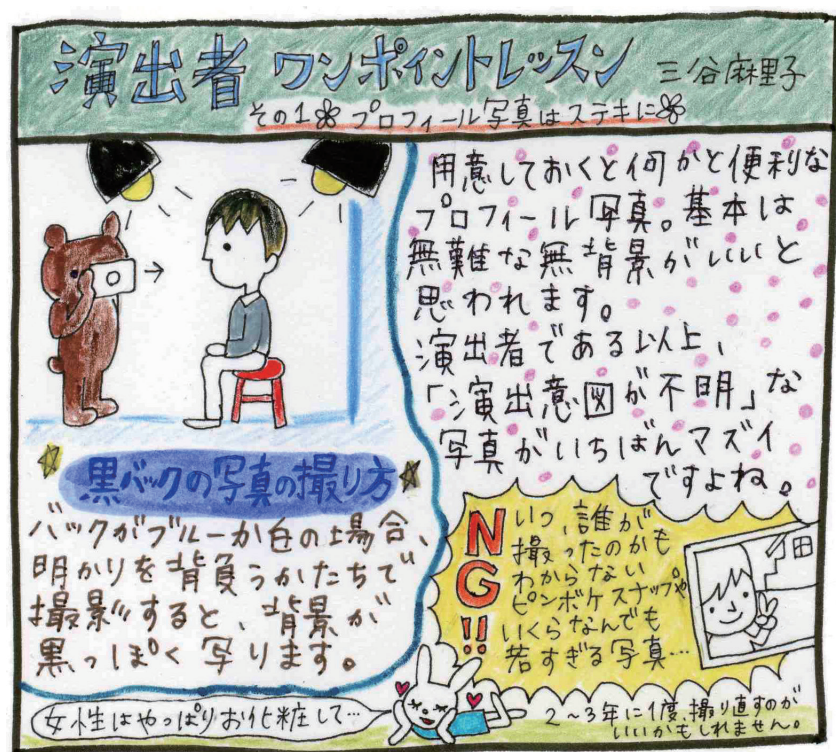 演出者 ワンポイントレッスン 三谷麻里子
その1 プロフィール写真はステキに
用意しておくと何かと便利な
プロフィール写真。基本は
無難な無背景がいいと
思われます。
演出者である以上、
「演出意図が不明」な
写真がいちばんマズイ
ですよね。
黒バックの写真の撮り方
バックがブルーか白の場合、
明かりを背負うかたちで
撮影すると、背景が
黒っぽく写ります。
NG!!
いつ、誰が
撮ったのかも
わからない
ピンボケスナップや
いくらなんでも
若すぎる写真…
女性はやっぱりお化粧して…
2〜3年に1度、撮り直すのが
いいかもしれません。